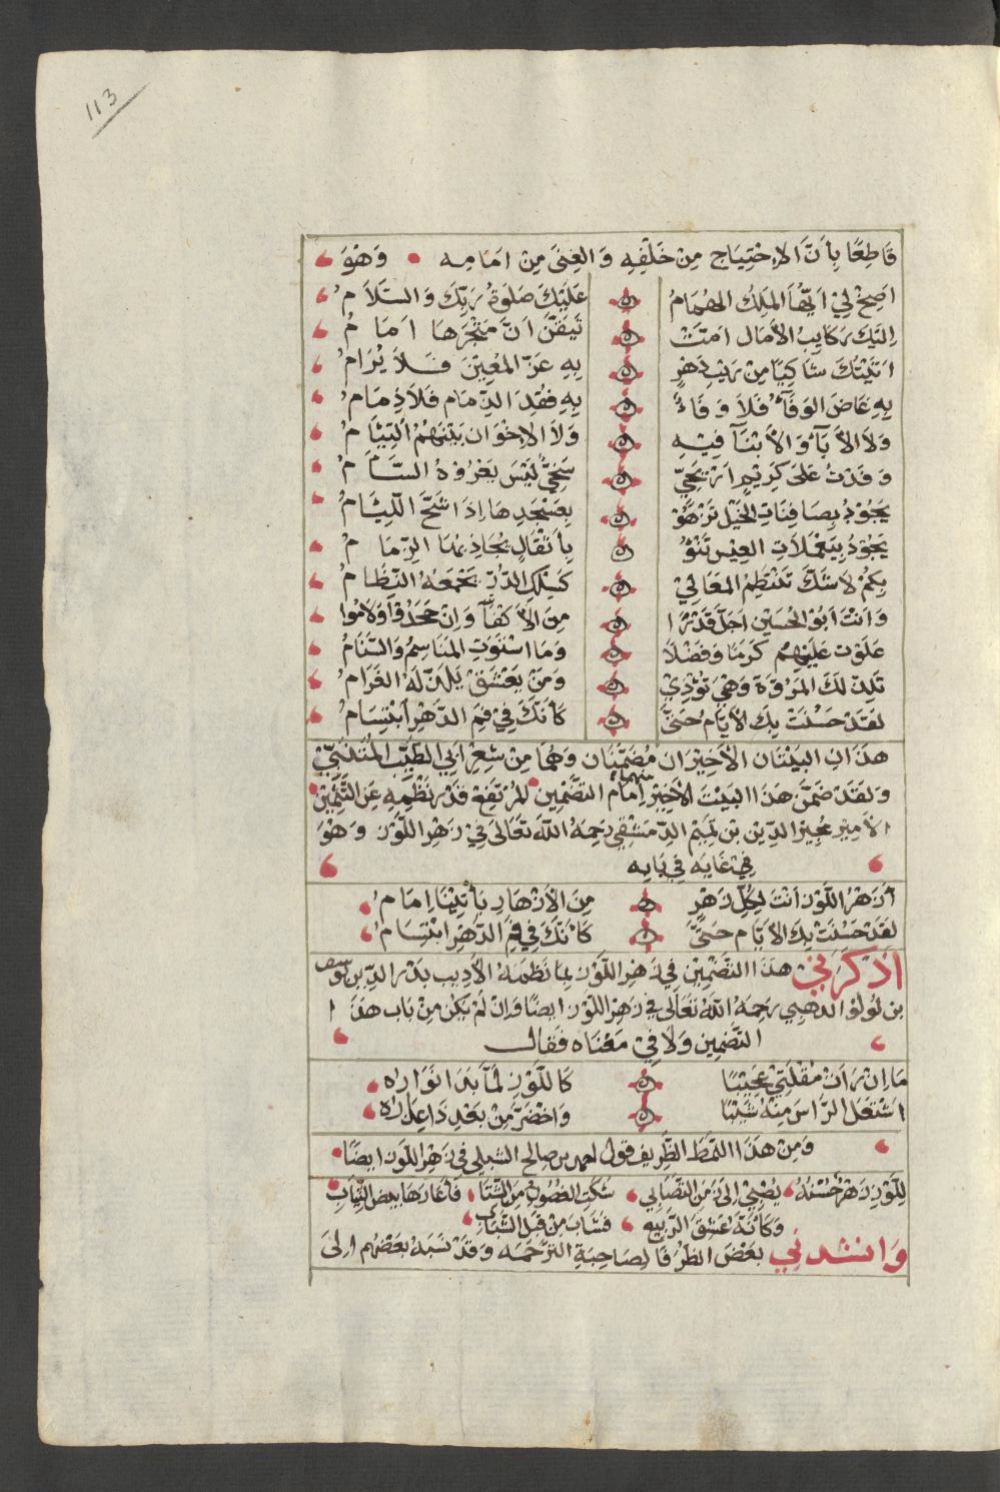 113
قَاطِعًا بِأَنَّ الاِحْتِيَاج مِنْ خَلْفِهِ وَالغِنَى مِنْ اَمَامِه وَهْوَ
اَصِخْ لِي اَيُّهَا المَلِكُ الهُمَامُ عَلَيْكَ صَلَوةُ رَبِّكَ وَالسَّلَامُ
اِلَيْكَ رَكَايِبُ الأَمَال اَمَّتْ تَيَقَّنُ اَنَّ مَتْجَرَهَا اَمَامُ
اَتَيْتُكَ شَاكِيًا مِنْ رَيْبِ دَهْرٍ بِهِ عَزَّ المُعِيْنَ فَلَا يُرَامُ
بِهِ غَاضَ الوَفَآءُ فَلَا وَفَاءٌ بِهِ فُقِدَ الذِّمَام فَلَا ذِمَامُ
وَلَا الأَبَآءُ وَالأَبْنَآ فِيْهِ وَلَا الاِخْوَان بَيْنَهُمْ الْتِيَامُ
وَفَدْتُ عَلَى كَرِيْمٍ اَرْيَحِيٍّ سَخِيٍّ لَيْسَ يَعْرُوْهُ السَّآمُ
يَجُوْدُ بِصَافِنَاتِ الخَيْل تَزْهُوْ بِعَسْجَدِهَا اِذَا شَحَّ اللِّيَامُ
يَجُوْدُ بِيَعْمَلَاتِ العِيْسِ تَنُوْءُ بِأَثْقَالٍ يُحَاذِرُهَا الزِّمَامُ
بِكُمْ لَا شَكَّ تَنْتَظِمُ المَعَالِيْ كَسِلْكِ الدُّرِّ يَجْمَعُهُ النِّظَامُ
وَاَنْتَ اَبُوْ الحُسَيْنِ اَجَلُّ قَدْرًا مِنَ الأَكْفَآ وَاِنْ جَحَدُوْا وَلَامُوا
عَلَوْتَ عَلَيْهِمُ كَرَمًا وَفَضْلًا وَمَا اسْتَوَتِ المَنَاسِمُ وَالسَّنَامُ
تَلَذُّ لَكَ المَرُوَّة وَهْيَ تُوْذِيْ وَمَنْ يَعْشَقْ يَلَذُّ لَهُ الغَرَامُ
لَقَدْ حَسُنَتْ بِكَ الأَيَّامُ حَتَّى كَاَنَّكَ فِيْ فَمِ الدَّهْرِ ابْتِسَامُ
هَذَانِ البَيْتَان الأَخِيْرَان مُضَمَّنَان وَهُمَا مِنْ شِعْرِ اَبِي الطَيِّبِ المُتَنَبِّيْ
وَلَقَدْ ضَمَّنَ هَذَا البَيْتَ الأَخِيْر منهما اِمَامُ التَّضْمِيْنِ المُرْتَفِعْ قَدْرُ نَظْمِهِ عَنِ الثَّمِيْنِ
الاَمِيْر مُجِيْر الدِّيْن بْن تَمِيْم الدِّمَشْقِي رَحِمَهُ اللهُ تَعَالَى فِيْ زَهْرِ اللَّوْز وَهْوَ
فِيْ غَايَه فِي بَابِه
أَزَهْرَ اللَّوْزِ اَنْتَ لِكُلِّ زَهْرٍ مِنَ الأَزْهَارِ يَأْتِيْنَا اِمَامُ
لَقَدْ حَسُنَتْ بِكَ الأَيَّامُ حَتَّى كَاَنَّكَ فِي فَمِ الدَّهْرِ ابْتِسَامُ
اَذْكَرَنِيْ هَذَا التَّضْمِيْن فِيْ زَهْرِ اللَّوْزِ بِمَا نَظَمَهُ الأَدِيب بَدْر الدِّين يوسف
بن لُولُو الذهبِي رَحِمَهُ اللهُ تَعَالَى فِيْ زَهْرِ اللَّوْز اَيضًا وَاِنْ لَمْ يَكُنْ مِنْ بَاب هَذَا
التَّضْمِين وَلَا فِيْ مَعْنَاه فَقَال
مَا اِنْ رَاَتْ مُقْلَتِيْ عَجِيْبًا كَاللَّوْزِ لَمَّا بَدَا نَوَّارُهْ
اشْتَعَلَ الرَّاسُ مِنْهُ شَيْبًا وَاخْضَرَّ مِنْ بَعْدِ ذَا عِذَارُهْ
وَمِنْ هَذَا النَّمَط الظَّرِيف قول احمد بن صالح السبلي فِيْ زَهْرِ اللَّوز اَيضًا
لِلَّوْزِ زَهْرٌ حُسْنُهُ يُصْبِيْ اِلَى زَمَنِ التَّصَابِي شَكَتِ الغُصُوْنُ مِنَ الشِّتَا فَأَعَارَهَا بِيْضَ الثِّيَابِ
وَكَأَنَّهُ عَشِقَ الرَّبِيْع فَشَابَ مِنْ قَبْلِ الشَّبَابِ
وَانْشَدَنِي بَعْضُ الظُرفَا لِصَاحِبَةِ التَّرْجَمَه وَقَدْ نَسَبَهُ بَعْضُهُم اِلَى